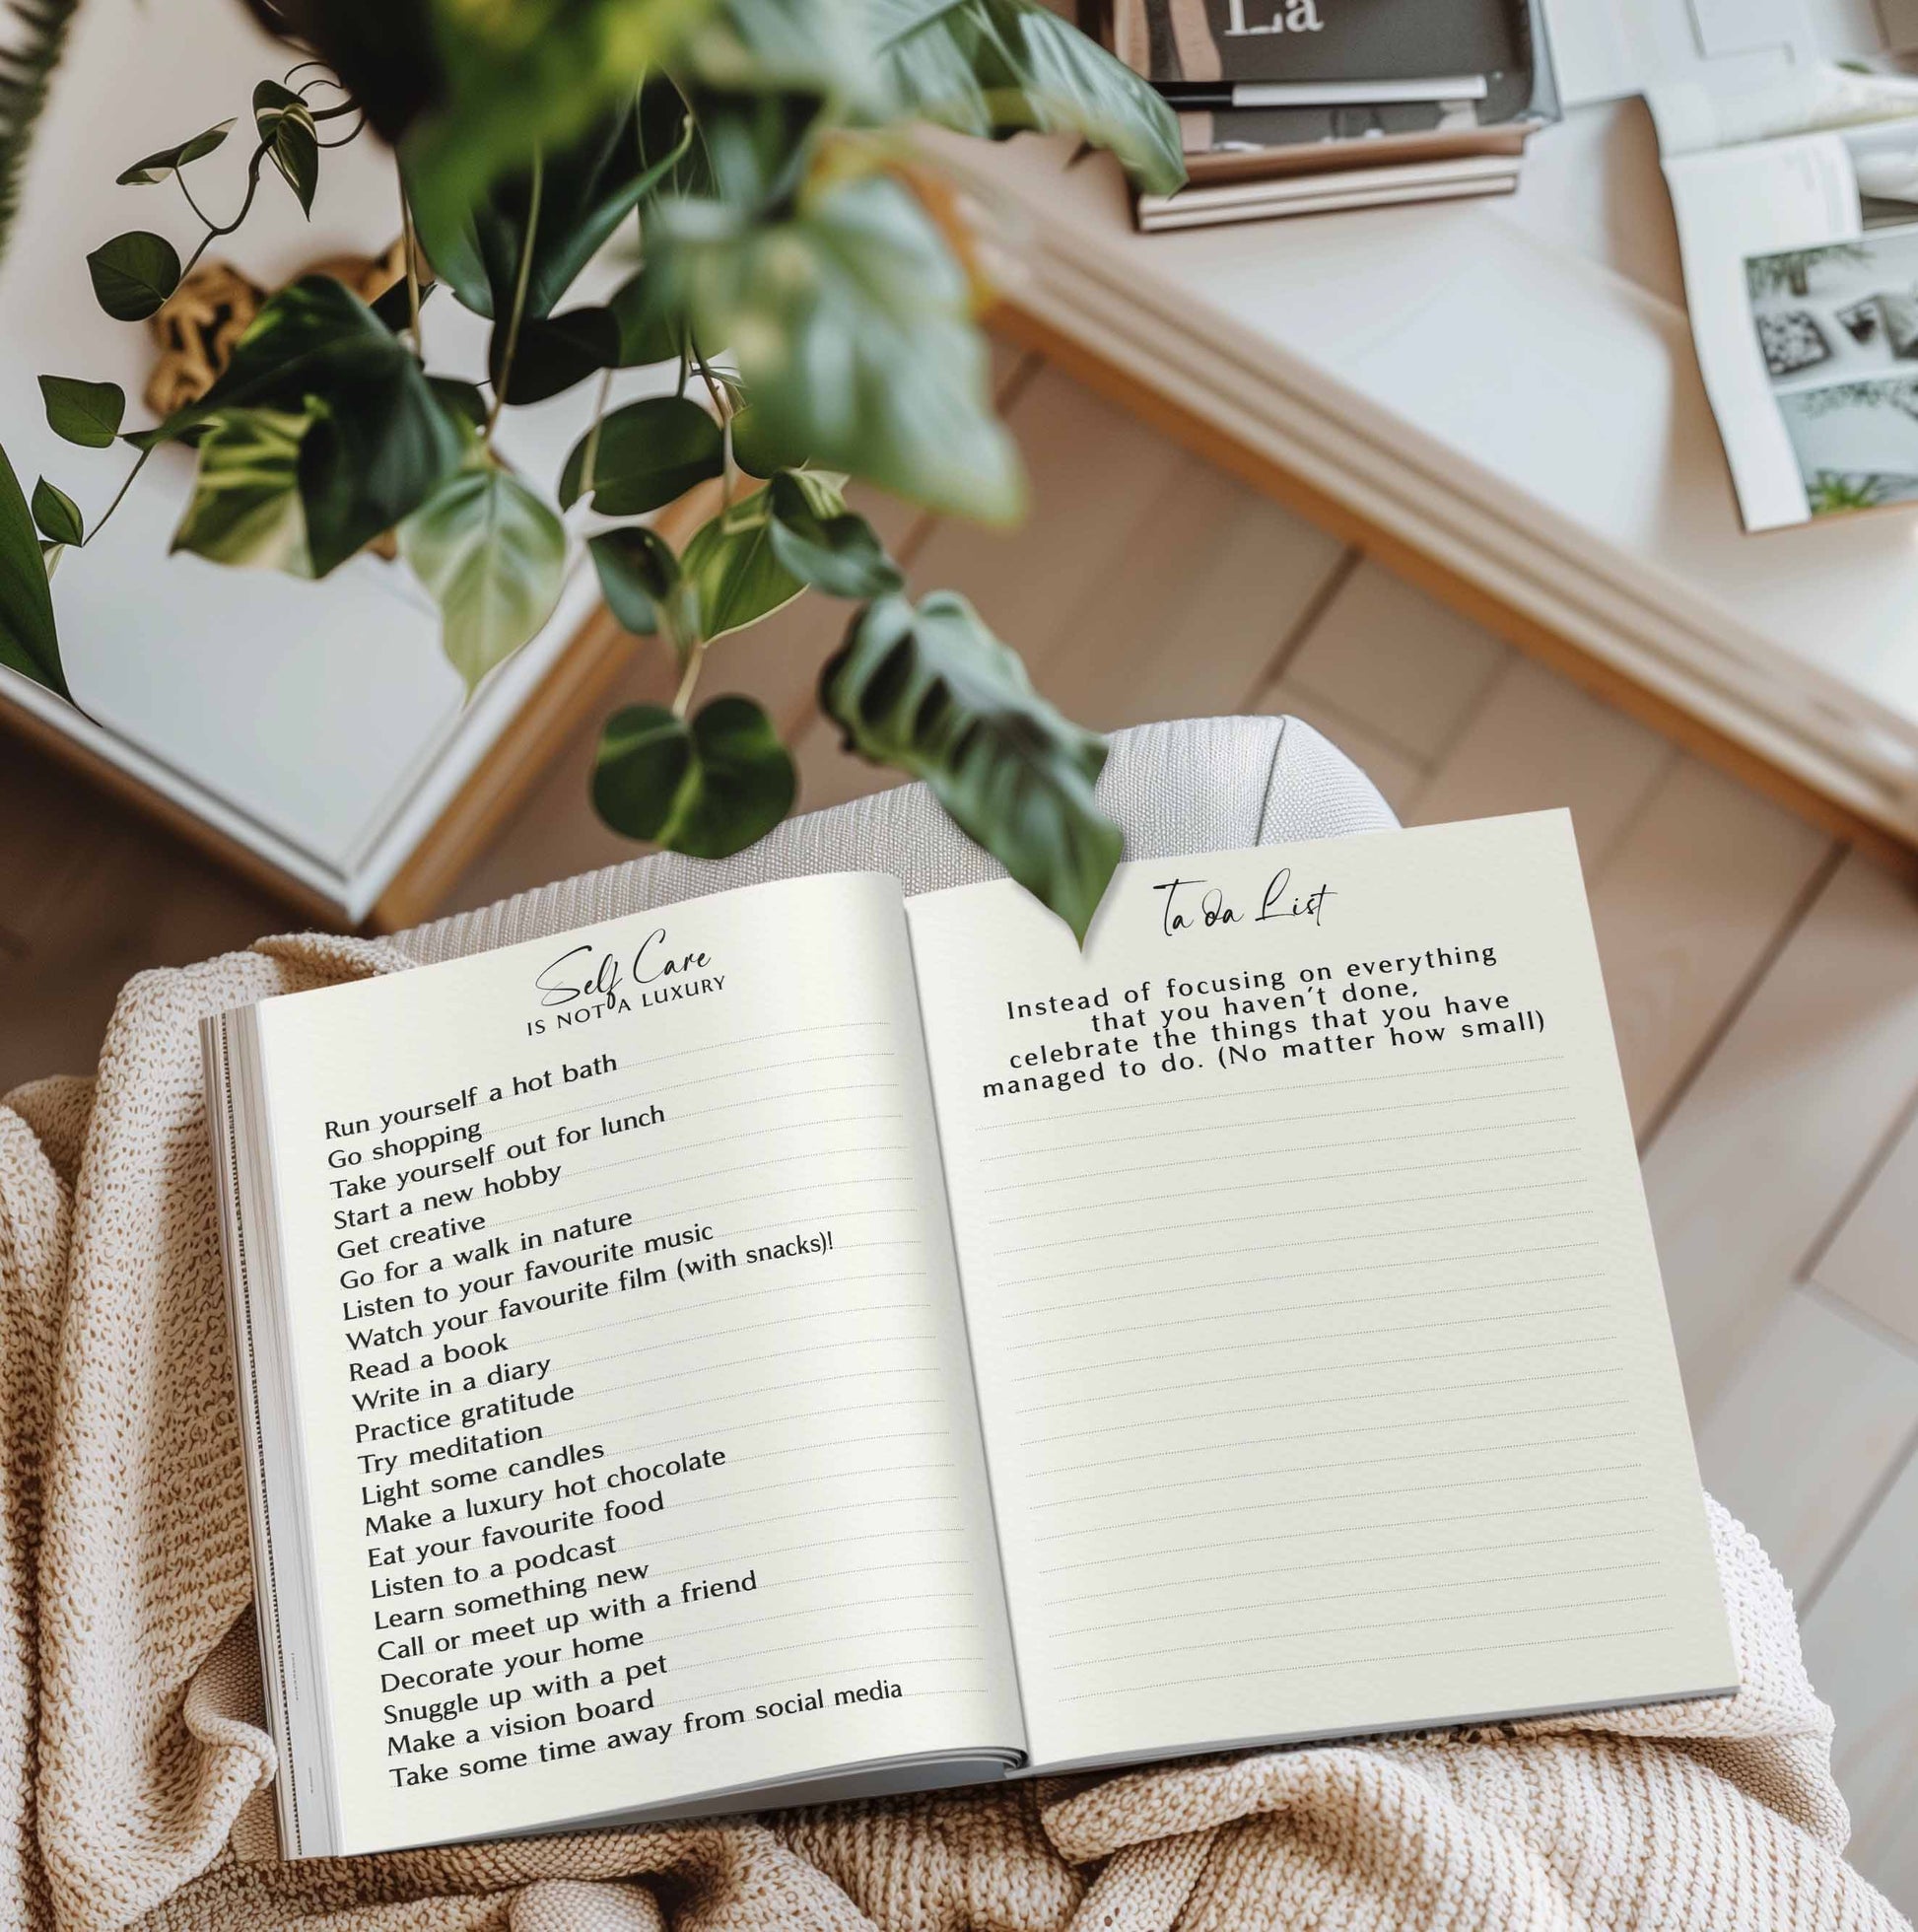 La
Self Care
IS NOT A LUXURY
Run yourself a hot bath
Go shopping
Take yourself out for lunch
Start a new hobby
Get creative
Go for a walk in nature
Listen to your favourite music
Watch your favourite film (with snacks)!
Read a book
Write in a diary
Practice gratitude
Try meditation
Light some candles
Make a luxury hot chocolate
Eat your favourite food
Listen to a podcast
Learn something new
Call or meet up with a friend
Decorate your home
Snuggle up with a pet
Make a vision board
Take some time away from social media
Ta da List
Instead of focusing on everything
that you haven't done,
celebrate the things that you have
managed to do. (No matter how small)